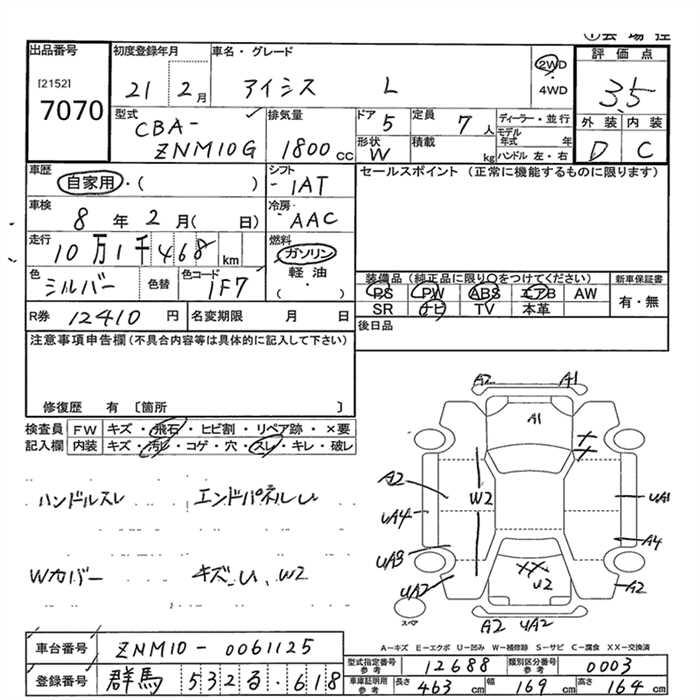 出品番号 初度登録年月 車名・グレード 評価点
[2152] 7070 21 2月 アイシス L 2WD・4WD 3.5
型式 CBA-ZNM10G 排気量 1800cc ドア 5 形状 W 定員 7人 積載 kg ディーラー・並行 モデル年式 年 ハンドル 左・右 外装 内装 D C
車歴 自家用・( ) シフト -IAT セールスポイント (正常に機能するものに限ります)
車検 8年2月( 日) 冷房 AAC
走行 10万1千468km 燃料 ガソリン 軽油・( )
色 シルバー 色替 色コード 1F7 装備品(純正品に限り〇をつけてください) 新車保証書
PS PW ABS エアB AW 有・無
SR ナビ TV 本革
R券 12410円 名変期限 月 日 後日品
注意事項申告欄(不具合内容等は具体的に記入して下さい)
修復歴 有 〔箇所 〕
検査員 FW キズ・飛石・ヒビ割・リペア跡・×要
記入欄 内装 キズ・汚レ・コゲ・穴・スレ・キレ・破レ
ハンドルスレ エンドパネルU
Wカバー キズ、U、W2
A2 A1
A1
A2 W2 UA1
UA4 A4
UA3
UA2 XX U2 A2
スペア A2 UA2
A-キズ E-エクボ U-凹み W-補修跡 S-サビ C-腐食 XX-交換済
車台番号 ZNM10-0061125 型式指定番号 参考 12688 類別区分番号 参考 0003
登録番号 群馬 532 る・618 車庫証明用 参考 長さ 463cm 幅 169cm 高さ 164cm